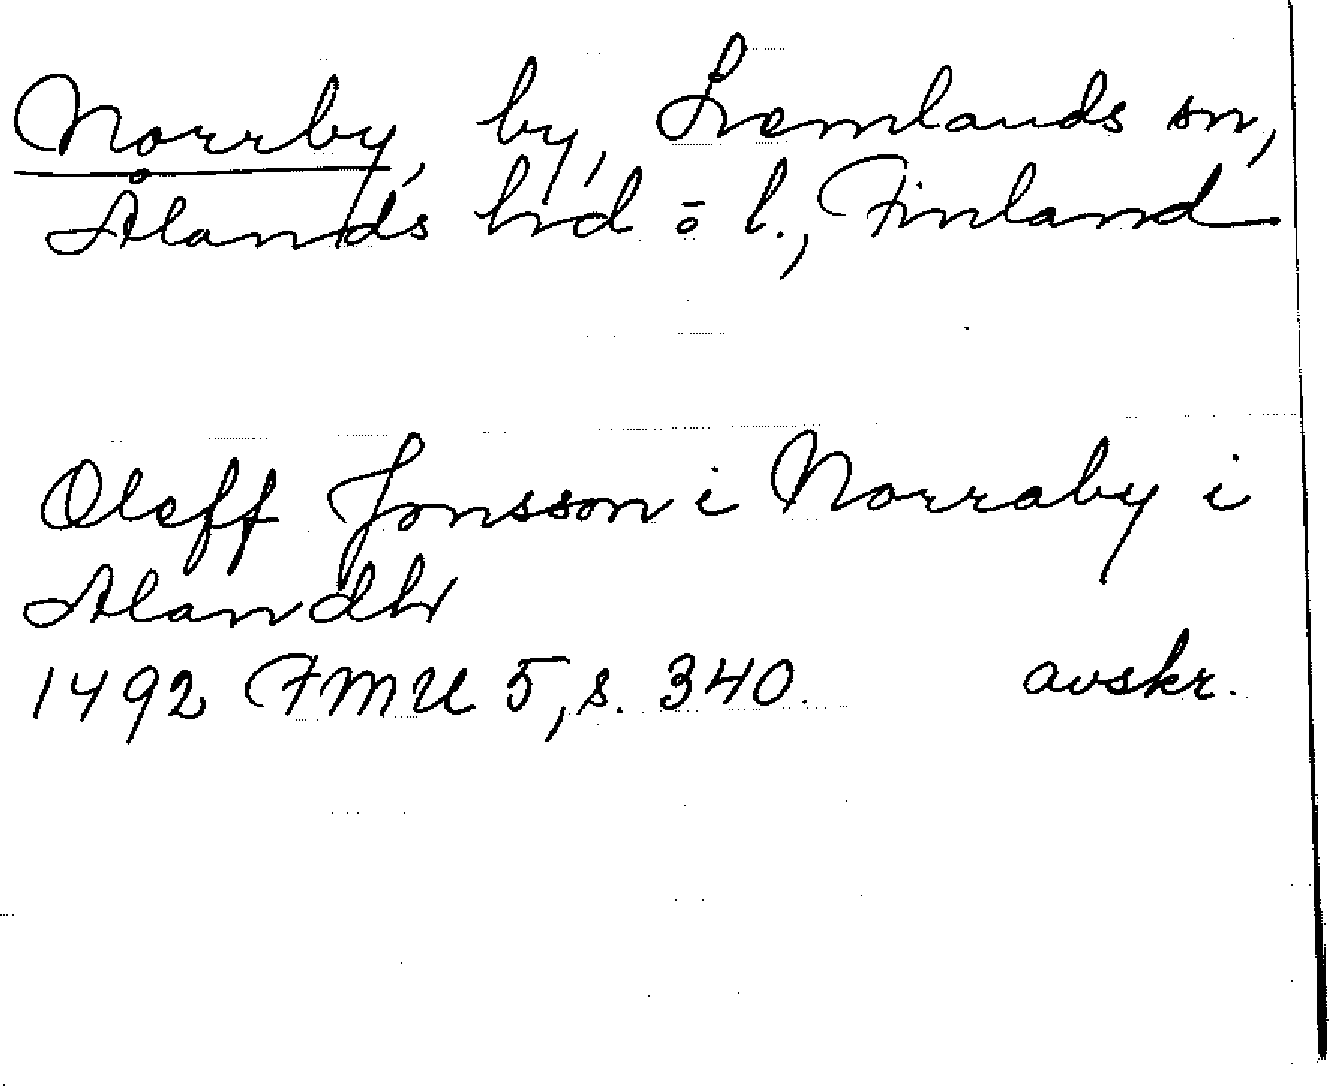 Norrby, by, Lemlands sn,
Ålands hd o l., Finland
Oleff Jonsson i Norraby i
Alandh
1492 FMU 5, s. 340. avskr.